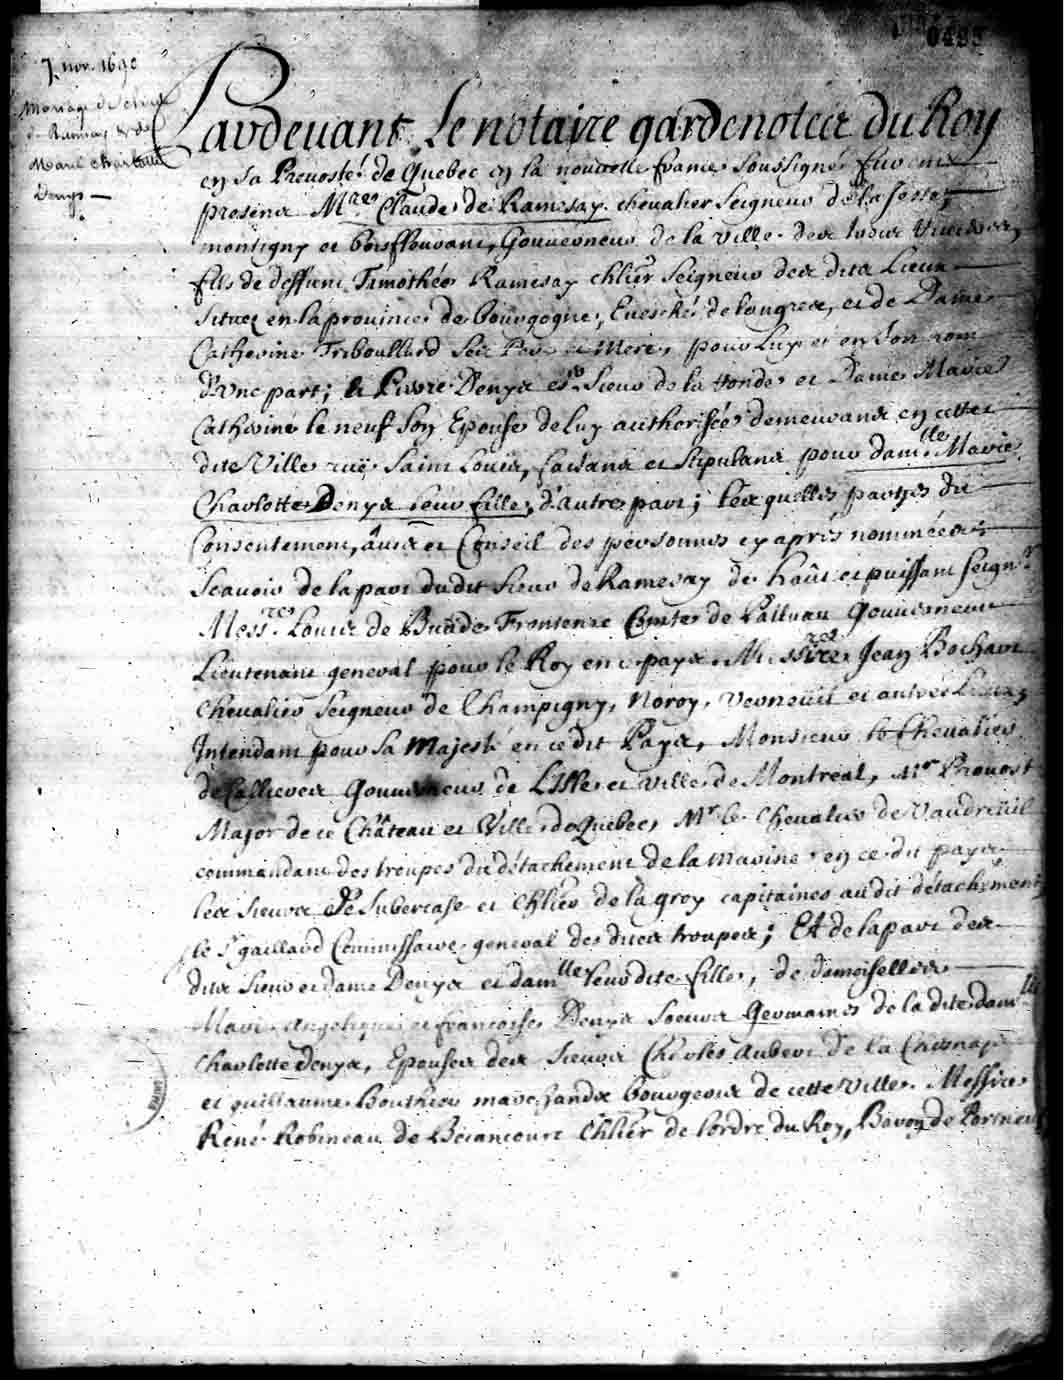 7. nov. 1690
Mariage de Claude
de Ramezay & de
Marie Charlotte
Denys —
Pardevant Le notaire gardenottes du Roy
en sa Prevosté de Quebec en la nouvelle france soussigné furent
presens Mre Claude de Ramesay chevalier Seigneur de la Gesse,
montigny et boisfleurant, Gouverneur de la ville des trois Rivieres,
fils de deffunt Timothée Ramesay chlier Seigneur des dits Lieux
Situez en la province de bourgogne, Evesché de langres, et de Dame
Catherine Tribouillard Ses Pere et Mere, pour Luy et en Son nom
d'Une part; et Pierre Denys esr Sieur de la Ronde et Dame Marie
Catherine le neuf Son Epouse de luy authorisée demeurans en cette
dite Ville ruë Saint Louis, faisans et stipulans pour damlle Marie
Charlotte Denys leur fille, d'autre part; lesquelles partyes du
Consentement, âvis et Conseil des personnes cy aprés nommées
Scavoir de la part dudit Sieur de Ramesay de haut et puissant Seignr
Messre Louis de Buade Frontenac Comte de Palluau Gouverneur
Lieutenant general pour le Roy en ce pays. Messire Jean Bochart
Chevalier Seigneur de Champigny, Noroy, Verneüil et autres Lieux
Intendant pour Sa Majesté en ce dit Pays, Monsieur le Chevalier
de Callieres Gouverneur de L'Isle et Ville de Montreal, Mr Provost
Major de ce Château et Ville de Quebec, Mr le Chevalier de Vaudreüil
commandant des troupes du détachement de la marine en ce dit pays
les Sieurs de Subercase et Chlier de la groy capitaines audit détachement
le Sr gaillard Commissaire general des dites troupes; Et de la part des
dits Sieur et dame Denys et damlle leur dite fille, de damoiselles
Marie Angelique et francoise Denys Soeurs Germaines de la dite damlle
Charlotte Denys, Epouses des Sieurs Charles Aubert de la Chesnaye
et guillaume Bouthier marchands bourgeois de cette Ville. Messire
René Robineau de Becancourt Chlier de l'ordre du Roy, Baron de Portneuf